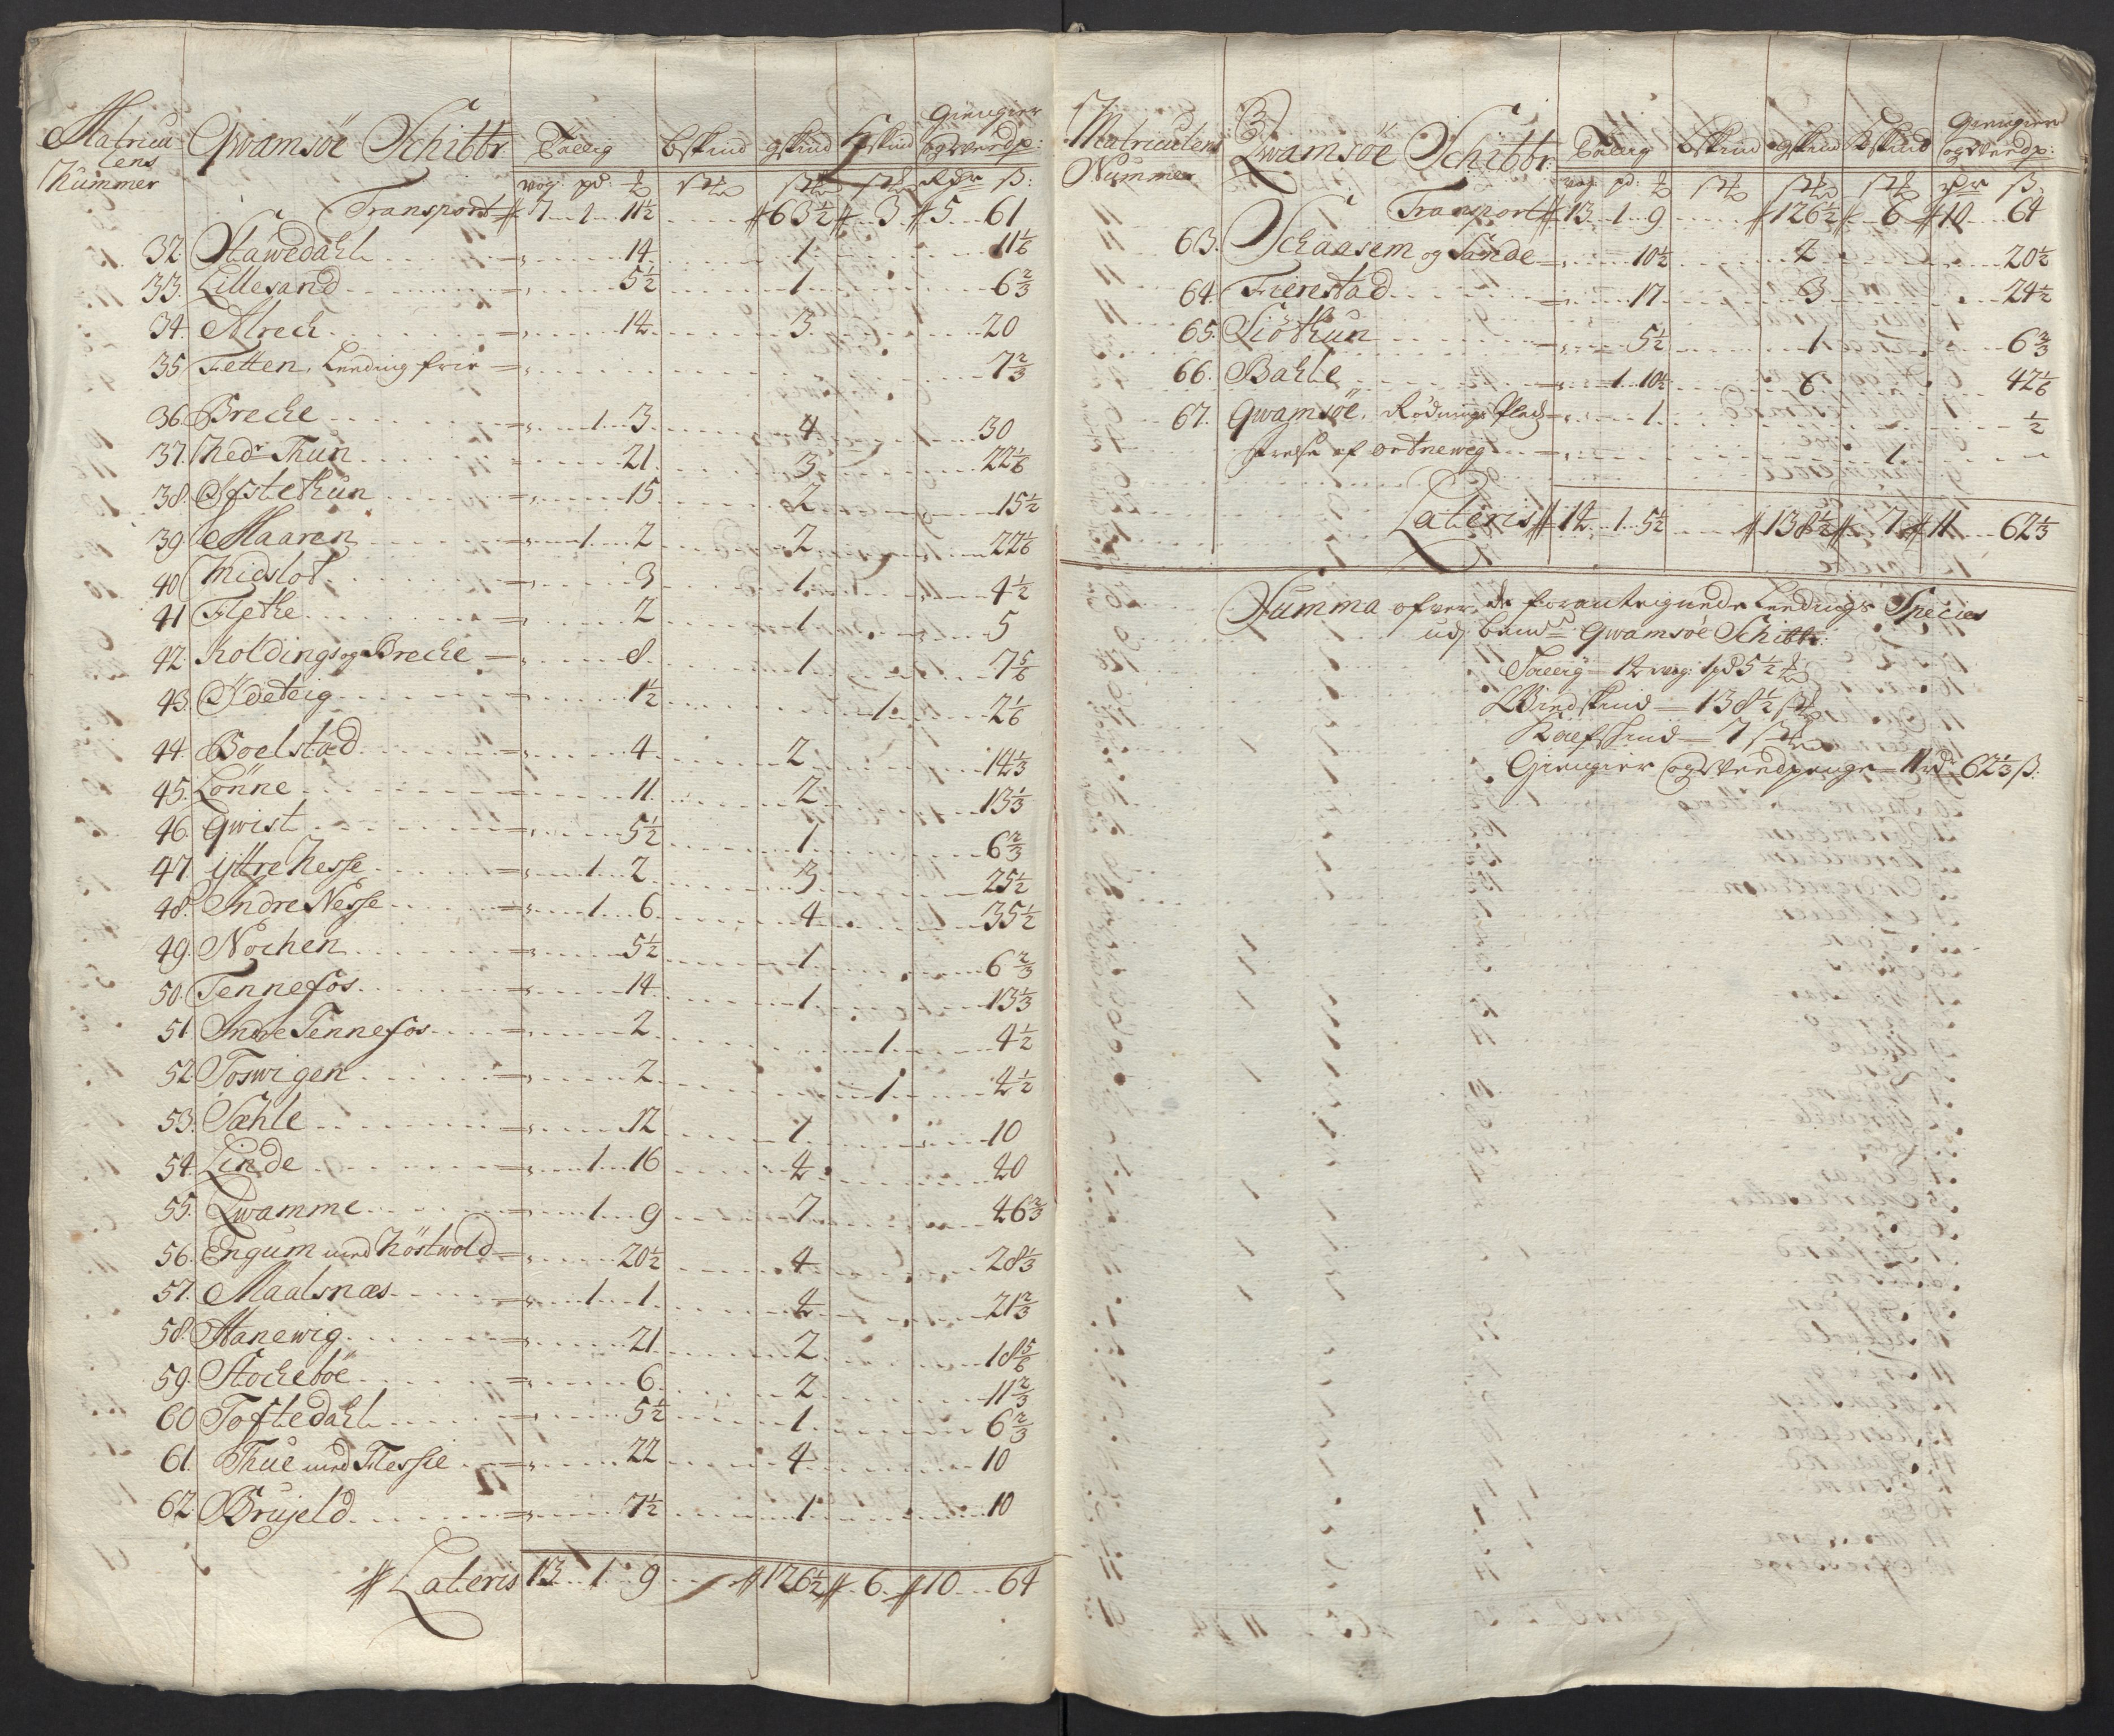 Matricu- Qwamsöe Schibbr Tallig bskind gskind Kskind Giengier
lens ogwerdp:
Nummer wog: pd: ℔ Rdr ß:
Transport 7 1 11½ 63½ 3 5 61
32 Stawedahl 14 1 11⅙
33. Lillesand 5½ 1 6⅔
34. Alrech 14 3 20
35 Fetten, Leeding frie 7⅔
36. Breche 1 3 4 30
37. Nedr Thun 21 3 22⅙
38. Östethun 15 2 15½
39. Maaren 1 2 2 22⅙
40 Nidslot 3 1 4½
41 Flethe 2 1 5
42. Koldings og Breche 8 1 7⅚
43. Ödeteig 1½ 1 2⅙
44. Boelstad 4 2 14⅓
45. Lönne 11 2 13⅓
46. Qwist 5½ 1 6⅔
47. ijttre Nesse 1 2 3 25½
48. Indre Nesse 1 6 4 35½
49. Nochen 5½ 1 6⅔
50. Tennefos 14 1 13⅓
51 Indre Tennefos 2 1 4½
52. Toswigen 2 1 4½
53. Sæhle 12 1 10
54. Linde 1 16 4 40
55. Qwamme 1 9 7 46⅔
56. Engum med Köstwold 20½ 4 28⅓
57. Maalsnæs 1 1 4 21⅔
58. Hanewig 21 2 18⅚
59. Stocheböe 6 2 11⅔
60 Toftedahl 5½ 1 6⅔
61. Thue med Flessie 22 4 10
62. Brujeld 7½ 1 10
Lateris 13 1 9 126½ 6 10 64
Matriculens Qwamsöe Schibbr: Tallig bskind gskind Kskind Giengier
Nummer ogwerdp:
wog pd: ℔ Rdr ß
Transport 13 1 9 126½ 6 10 64
63. Schaasem og Sande 10½ 2 20½
64. Fierestad 17 3 24½
65. Siöthun 5½ 1 6⅔
66. Bahle 1 10½ 6 42⅙
67. Qwamsöe, Rödnings Plads 1 ½
af ortneweg 1
Lateris 14 1 5½ 138½ 7 11 62⅓
Summa ofver de forantegnede Leedings Species
udj bemte Qwamsöe Schibbr:
Tallig 14 wog: 1 pd 5½ ℔
Giedskind 138½
Kalfskind 7
Giengier og Werdpenge 11 rdr 62⅓ ß: